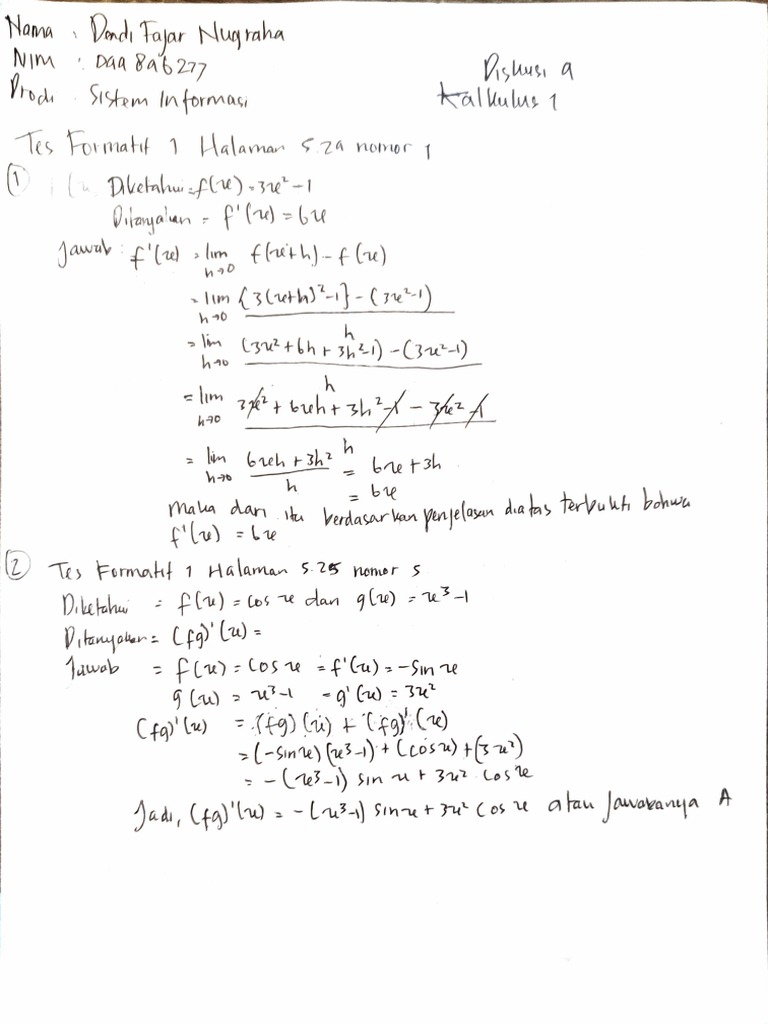 Nama : Dandi Fajar Nugraha
NIM : 0998a6277
Prodi : Sistem Informasi
Diskusi 9
Kalkulus 1
Tes Formatif 1 Halaman 5.29 nomor 1
① Diketahui = f(x) = 3x² - 1
Ditanyakan = f'(x) = 6x
Jawab : f'(x) = lim h→0 f(x+h) - f(x)
= lim h→0 {3(x+h)² - 1} - (3x² - 1)
h
= lim h→0 (3x² + 6h + 3h² - 1) - (3x² - 1)
h
= lim h→0 3x² + 6xh + 3h² - 1 - 3x² - 1
h
= lim h→0 6xh + 3h² / h = 6x + 3h
= 6x
Maka dari itu berdasarkan penjelasan diatas terbukti bahwa
f'(x) = 6x
② Tes Formatif 1 Halaman 5.25 nomor 5
Diketahui = f(x) = cos x dan g(x) = x³ - 1
Ditanyakan = (fg)'(x) =
Jawab = f(x) = cos x = f'(x) = - sin x
g(x) = x³ - 1 - g'(x) = 3x²
(fg)'(x) = (fg)(x) + (fg)'(x)
= (- sin x)(x³ - 1) + (cos x) + (3x²)
= - (x³ - 1) sin x + 3x² cos x
Jadi, (fg)'(x) = - (x³ - 1) sin x + 3x² cos x atau Jawabanya A